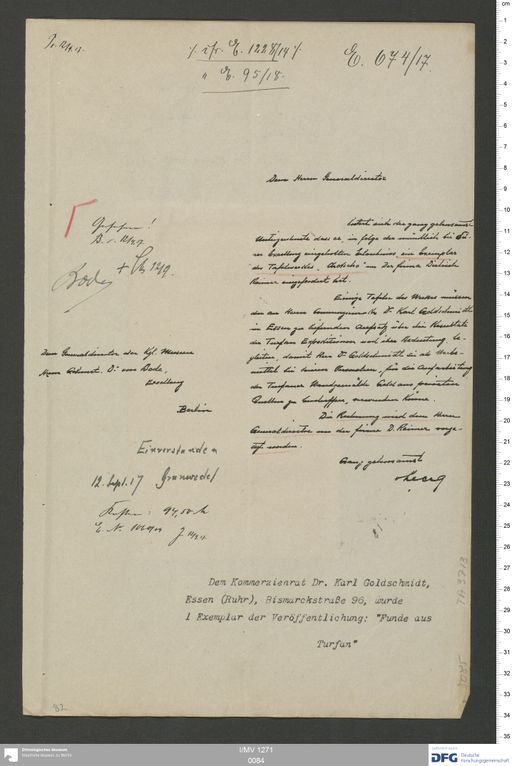 E. 1228/14
E. 95/18.
E. 674/17.
Dem Herrn Generaldirektor
beehrt sich der ganz gehorsamst
Unterzeichnete dass er, in folge der mündlich bei
Exzellenz eingeholten Erlaubnis, ein Exemplar
des Tafelwerkes "Chotscho" von der firma Dietrich
Reimer eingefordert hat.
Einige Tafeln des Werkes müssen
den an Herrn Commerzienrath Dr. Karl Goldschmidt
in Essen zu sendenden Aufsatz über die Resultate
der Turfan Expeditionen und ihre Bedeutung be-
gleiten, damit Herr Dr. Goldschmidt sie als
mittel bei seinen Versuchen, für die Aufarbeitung
der Turfaner Wandgemälde Geld aus privaten
Quellen zu beschaffen, verwenden könne.
Die Rechnung wird dem Herrn
Generaldirektor von der firma D. Reimer vorge-
legt werden.
Ganz gehorsamst
LeCoq
Bode
Dem Generaldirektor der Kgl. Museen
Herrn von Bode,
Exzellenz
Berlin
Einverstanden
12. Sept. 17 Grünwedel
Kosten: 94,50 M
Dem Kommerzienrat Dr. Karl Goldschmidt,
Essen (Ruhr), Bismarckstraße 96, wurde
1 Exemplar der Veröffentlichung: "Funde aus
Turfan"
82
Ethnologisches Museum
Staatliche Museen zu Berlin
I/MV 1271
0084
DFG Deutsche
Forschungsgemeinschaft